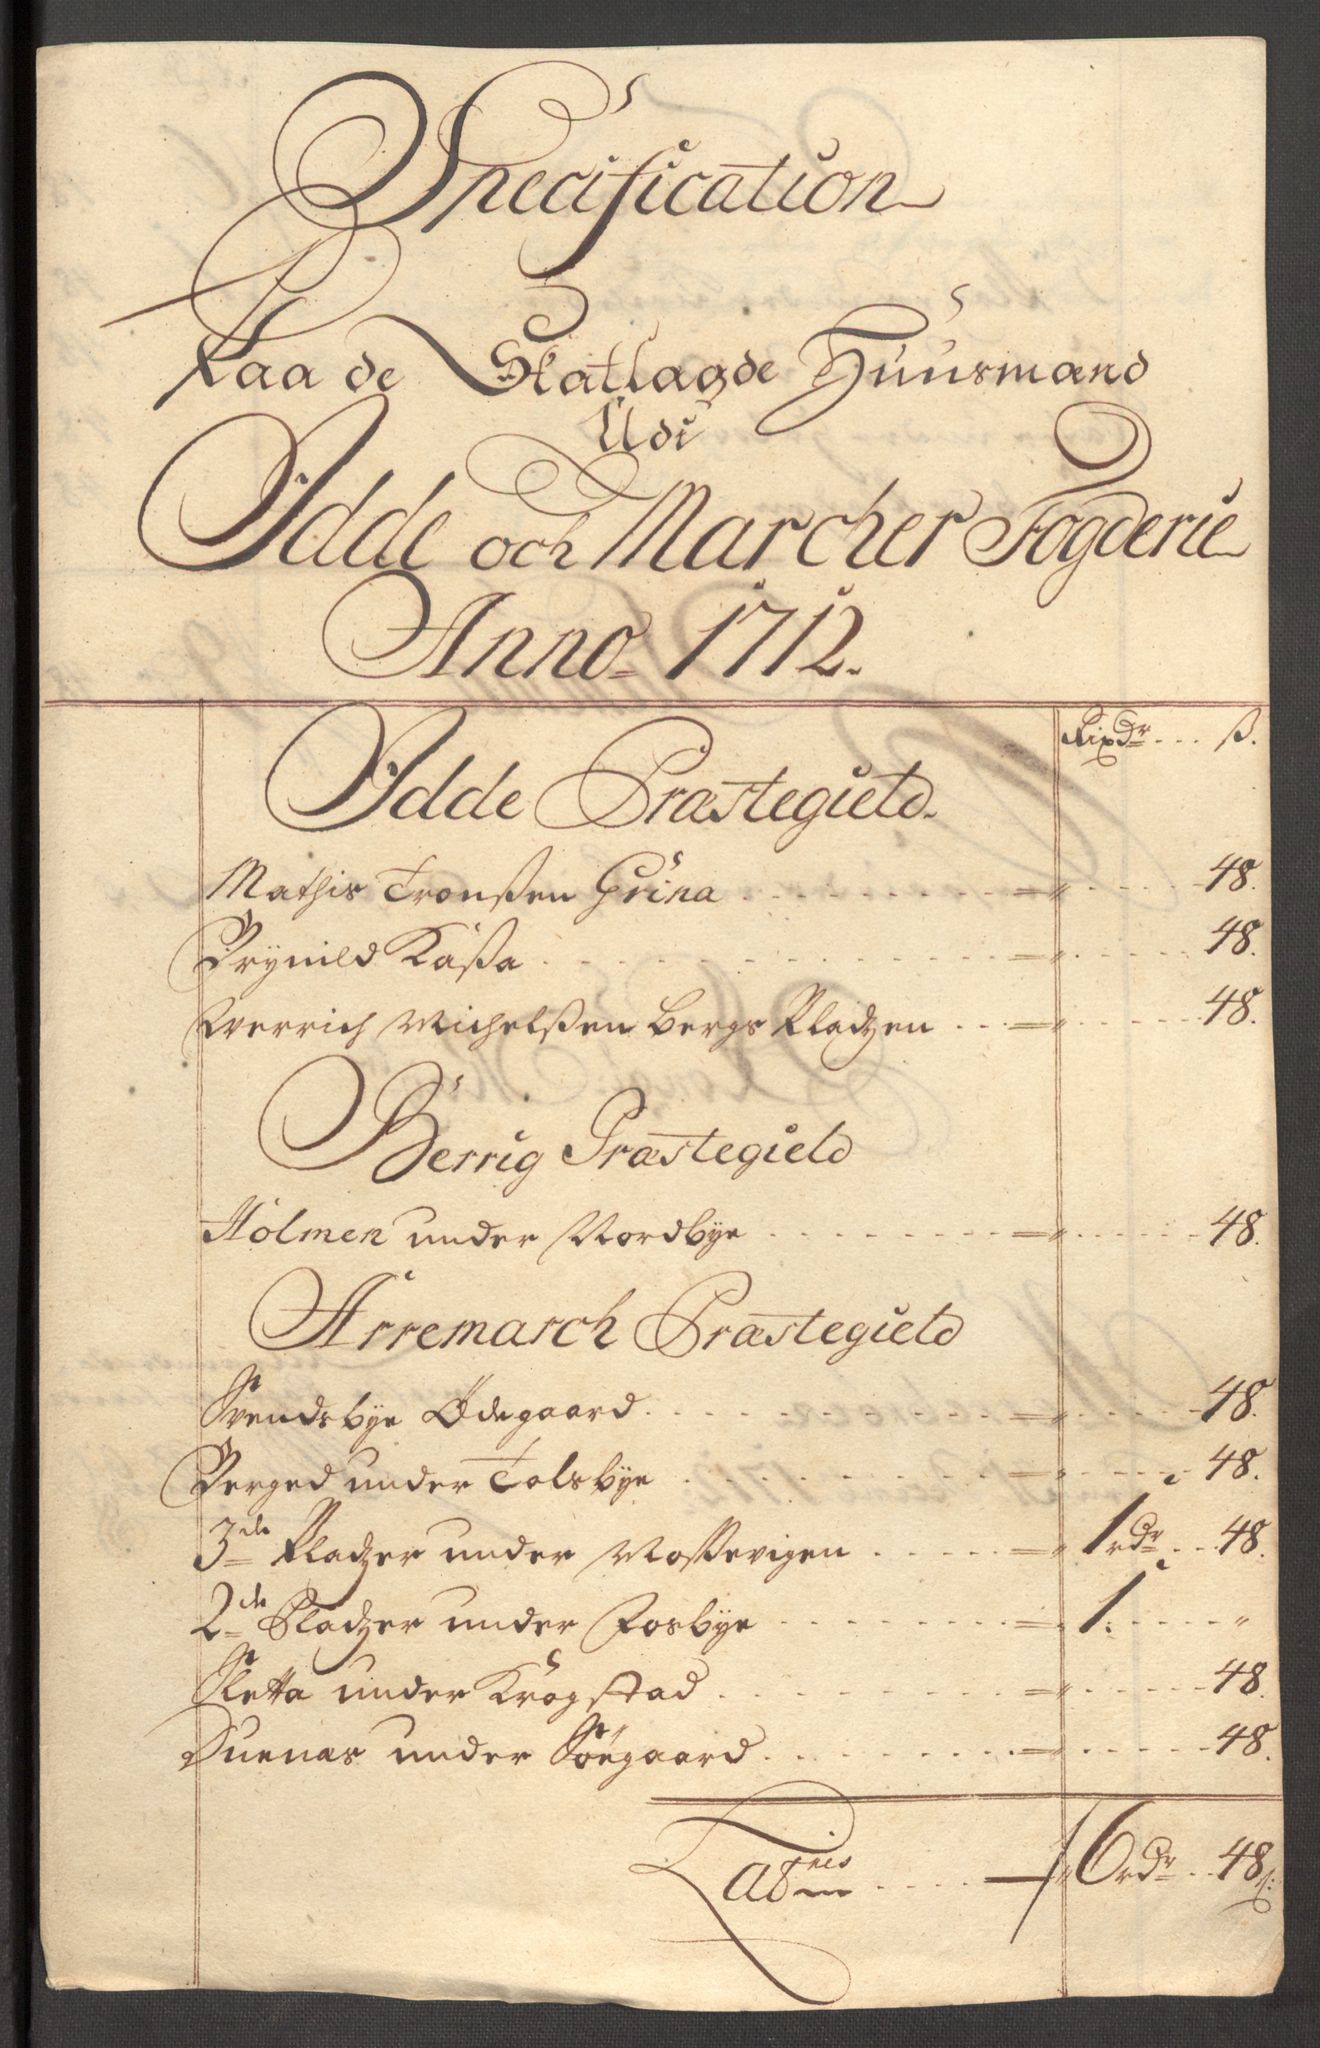 Specification
Paa de Skatlagde Huusmænd
Udi
Idde och Marcher Fogderie
Anno 1712.
Rixdr ... ß.
Idde Præstegield.
Mathis Tronßen Grina ... 48.
Brynild Kaßa ... 48.
Werrich Michelßen bergs Pladzen ... 48.
Berrig Præstegield
Holmen under Nordbye ... 48.
Arremarch Præstegield
Svendsbye Ødegaard ... 48.
Berged under Tolsbye ... 48.
3de Pladzer under Moßevigen ... 1 rdr ... 48.
2de Pladzer under Fosbye ... 1. ... "
Sletta under Krogstad ... 48.
under Søegaard ... 48.
Lateris ... 6 rdr .. 48 ß: